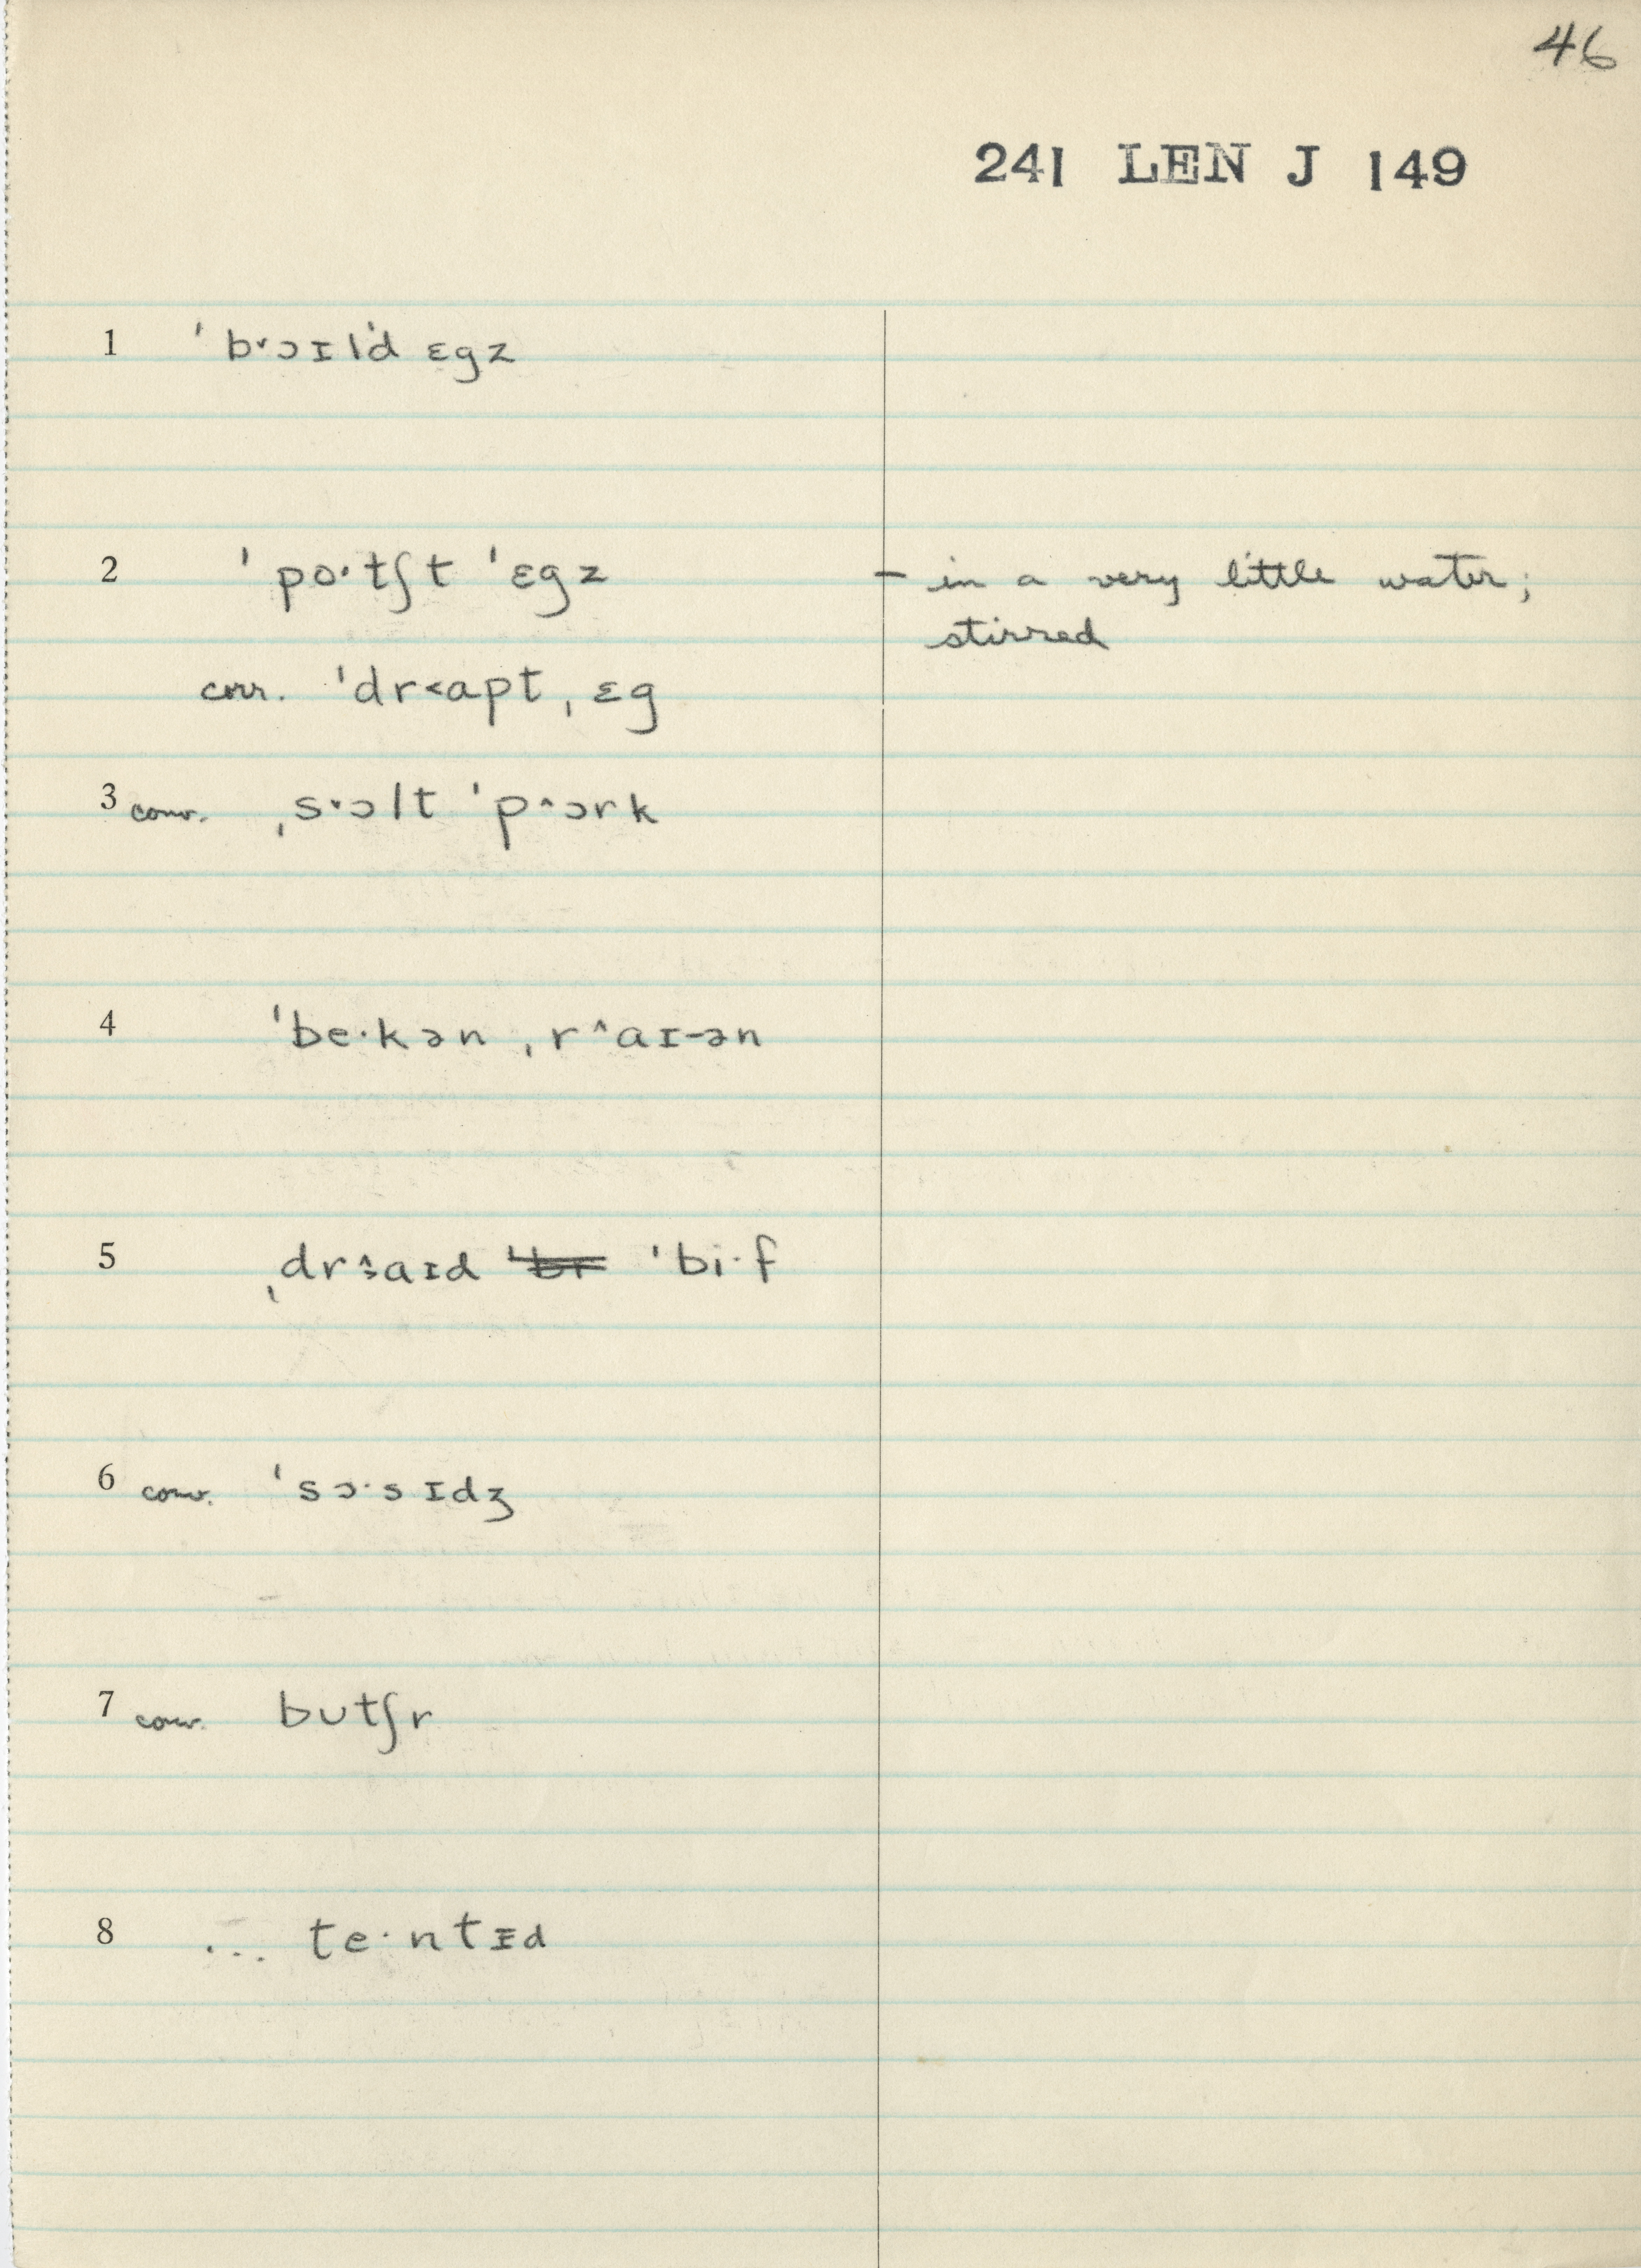 46
241 LEN J 149
1 ˈb˅ɔɪlˈd ɛgz
2 ˈpo·tʃt ˈɛgz – in a very little water;
stirred
corr. ˈdr˂apt ˌɛg
3 conv. ˌs˅ɔlt ˈp˄ɔrk
4 ˈbe·kən ˌr˄aɪ-ən
5 ˌdr˄˂aɪd ˈbi·f
6 conv. ˈsɔ·sɪdʒ
7 conv. bʊtʃr
8 ... te·ntɪd